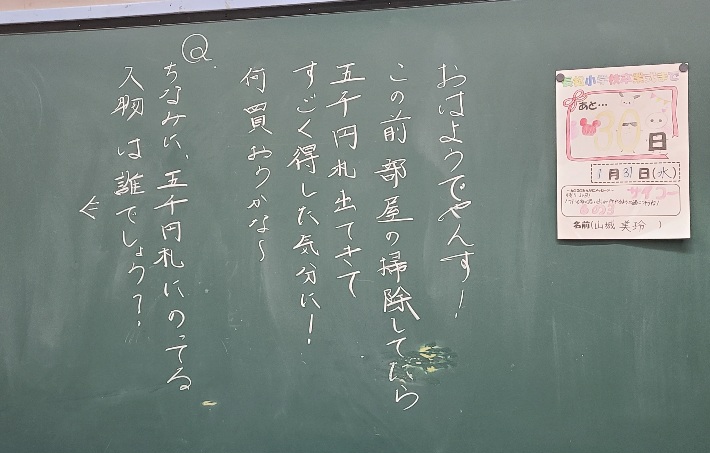 おはようでやんす！
この前部屋の掃除してたら
五千円札出てきて
すごく得した気分に！
何買おうかな～
Q
ちなみに、五千円札にのってる
人物は誰でしょう？
小学校卒業式まで
あと…
30日
1月31日(水)
サイコー
名前(山城 美玲 )